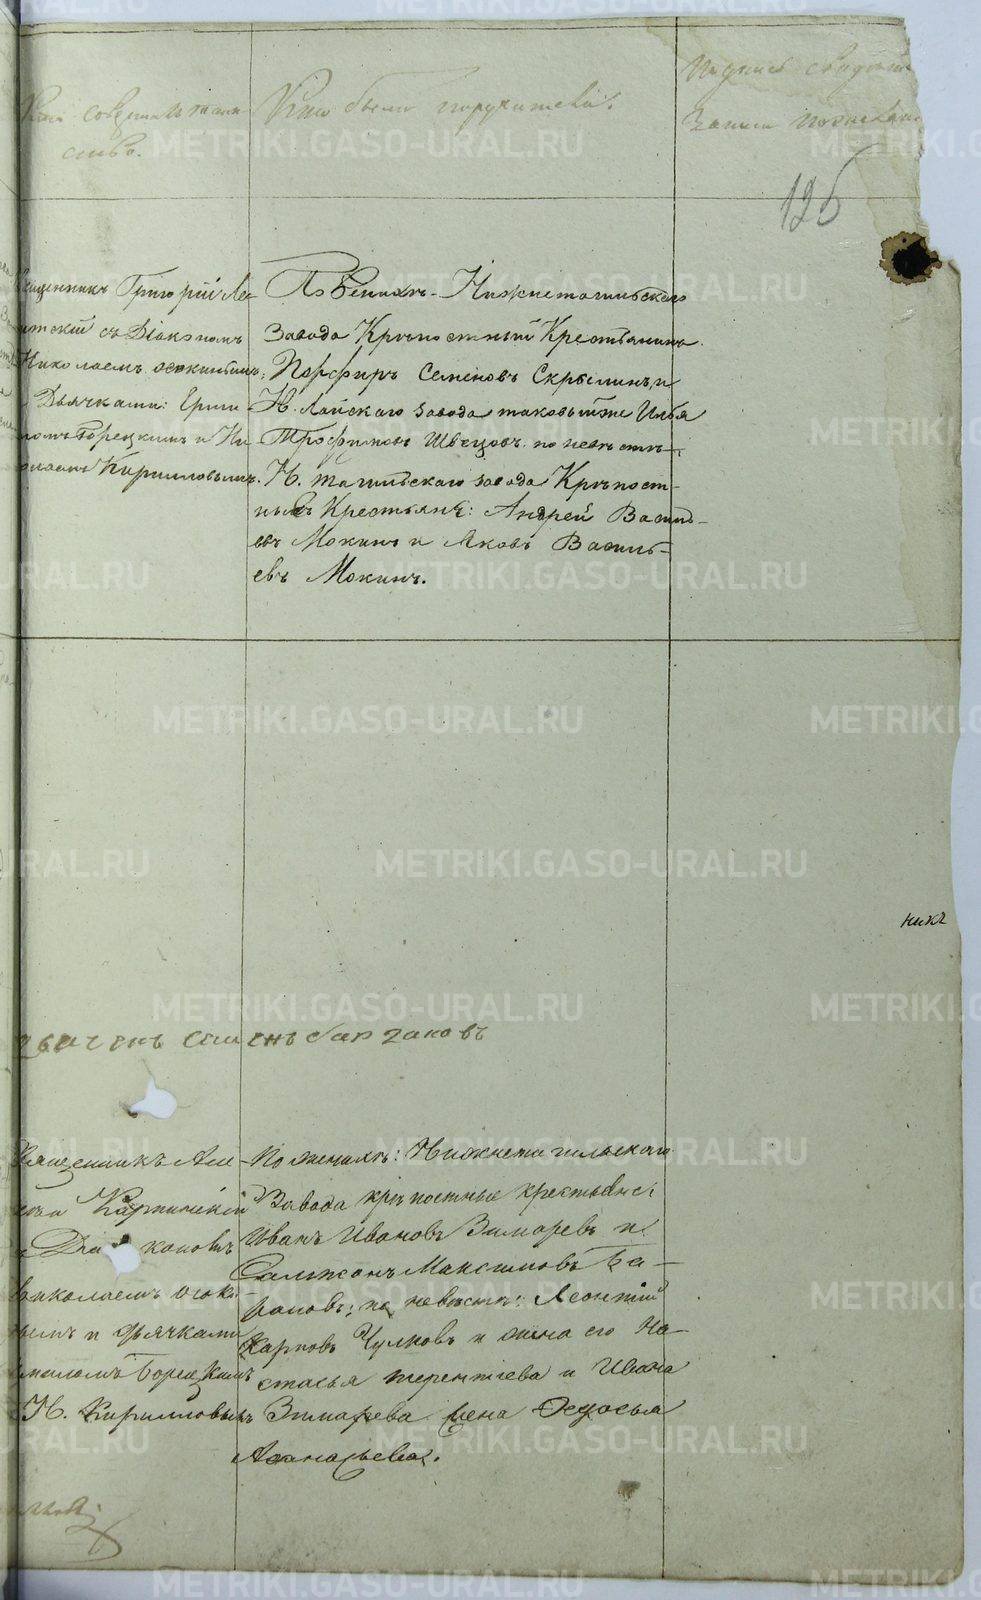 Кто совершалъ таин-
ство.
Кто были поручители.
Подпись свидѣте
записи по желан
126
Священникъ Григорій Ле-
витскій съ Діакономъ
Николаемъ
Дьячками: Ерми
ломъ Борецкимъ и Ни
Кирилловымъ.
По Женихѣ Нижнетагильскаго
Завода Крѣпостный Крестьянинъ
Порфиръ Семеновъ Скрылинъ, и
Н. Лайскаго завода таковый же Илья
Трофимовъ Швецовъ. по невѣстѣ
Н. тагильскаго завода Крѣпост-
ныхъ Крестьянъ: Андрей Василь-
евъ Мокинъ и Яковъ Василь-
евъ Мокинъ.
никъ
Семенъ
Священникъ Але
Карпинскій
Діакономъ
Николаемъ
и дьячками
Борецкимъ
Н. Кирилловымъ
по женихѣ: Нижнетагильскаго
Завода крѣпостные крестьяне:
Иванъ Ивановъ Зимаревъ и
Максимовъ Ба-
рановъ; по невѣстѣ: Леонтій
Карповъ Чулковъ и жена его На-
стасья терентьева и Ивана
Зимарева жена Ѳедосья
Аѳанасьева.
METRIKI.GASO-URAL.RU